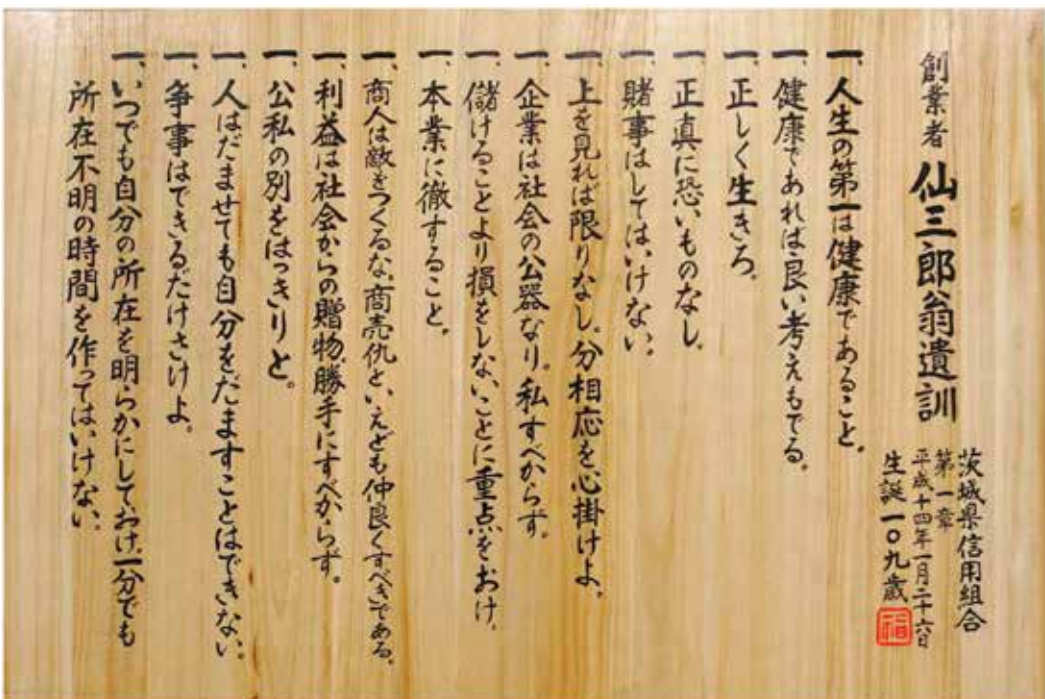 茨城県信用組合
第一章
平成十四年一月二十六日
生誕一〇九歳
創業者 仙三郎翁遺訓
一、人生の第一は健康であること。
一、健康であれば良い考えもでる。
一、正しく生きろ。
一、正真に恐いものなし。
一、賭事はしてはいけない。
一、上を見れば限りなし。分相応を心掛けよ。
一、企業は社会の公器なり。私すべからず。
一、儲けることより損をしないことに重点をおけ。
一、本業に徹すること。
一、商人は敵をつくるな。商売仇と、いえども仲良くすべきである。
一、利益は社会からの贈物。勝手にすべからず。
一、公私の別をはっきりと。
一、人はだませても自分をだますことはできない。
一、争事はできるだけさけよ。
一、いつでも自分の所在を明らかにしておけ。一分でも
所在不明の時間を作ってはいけない。